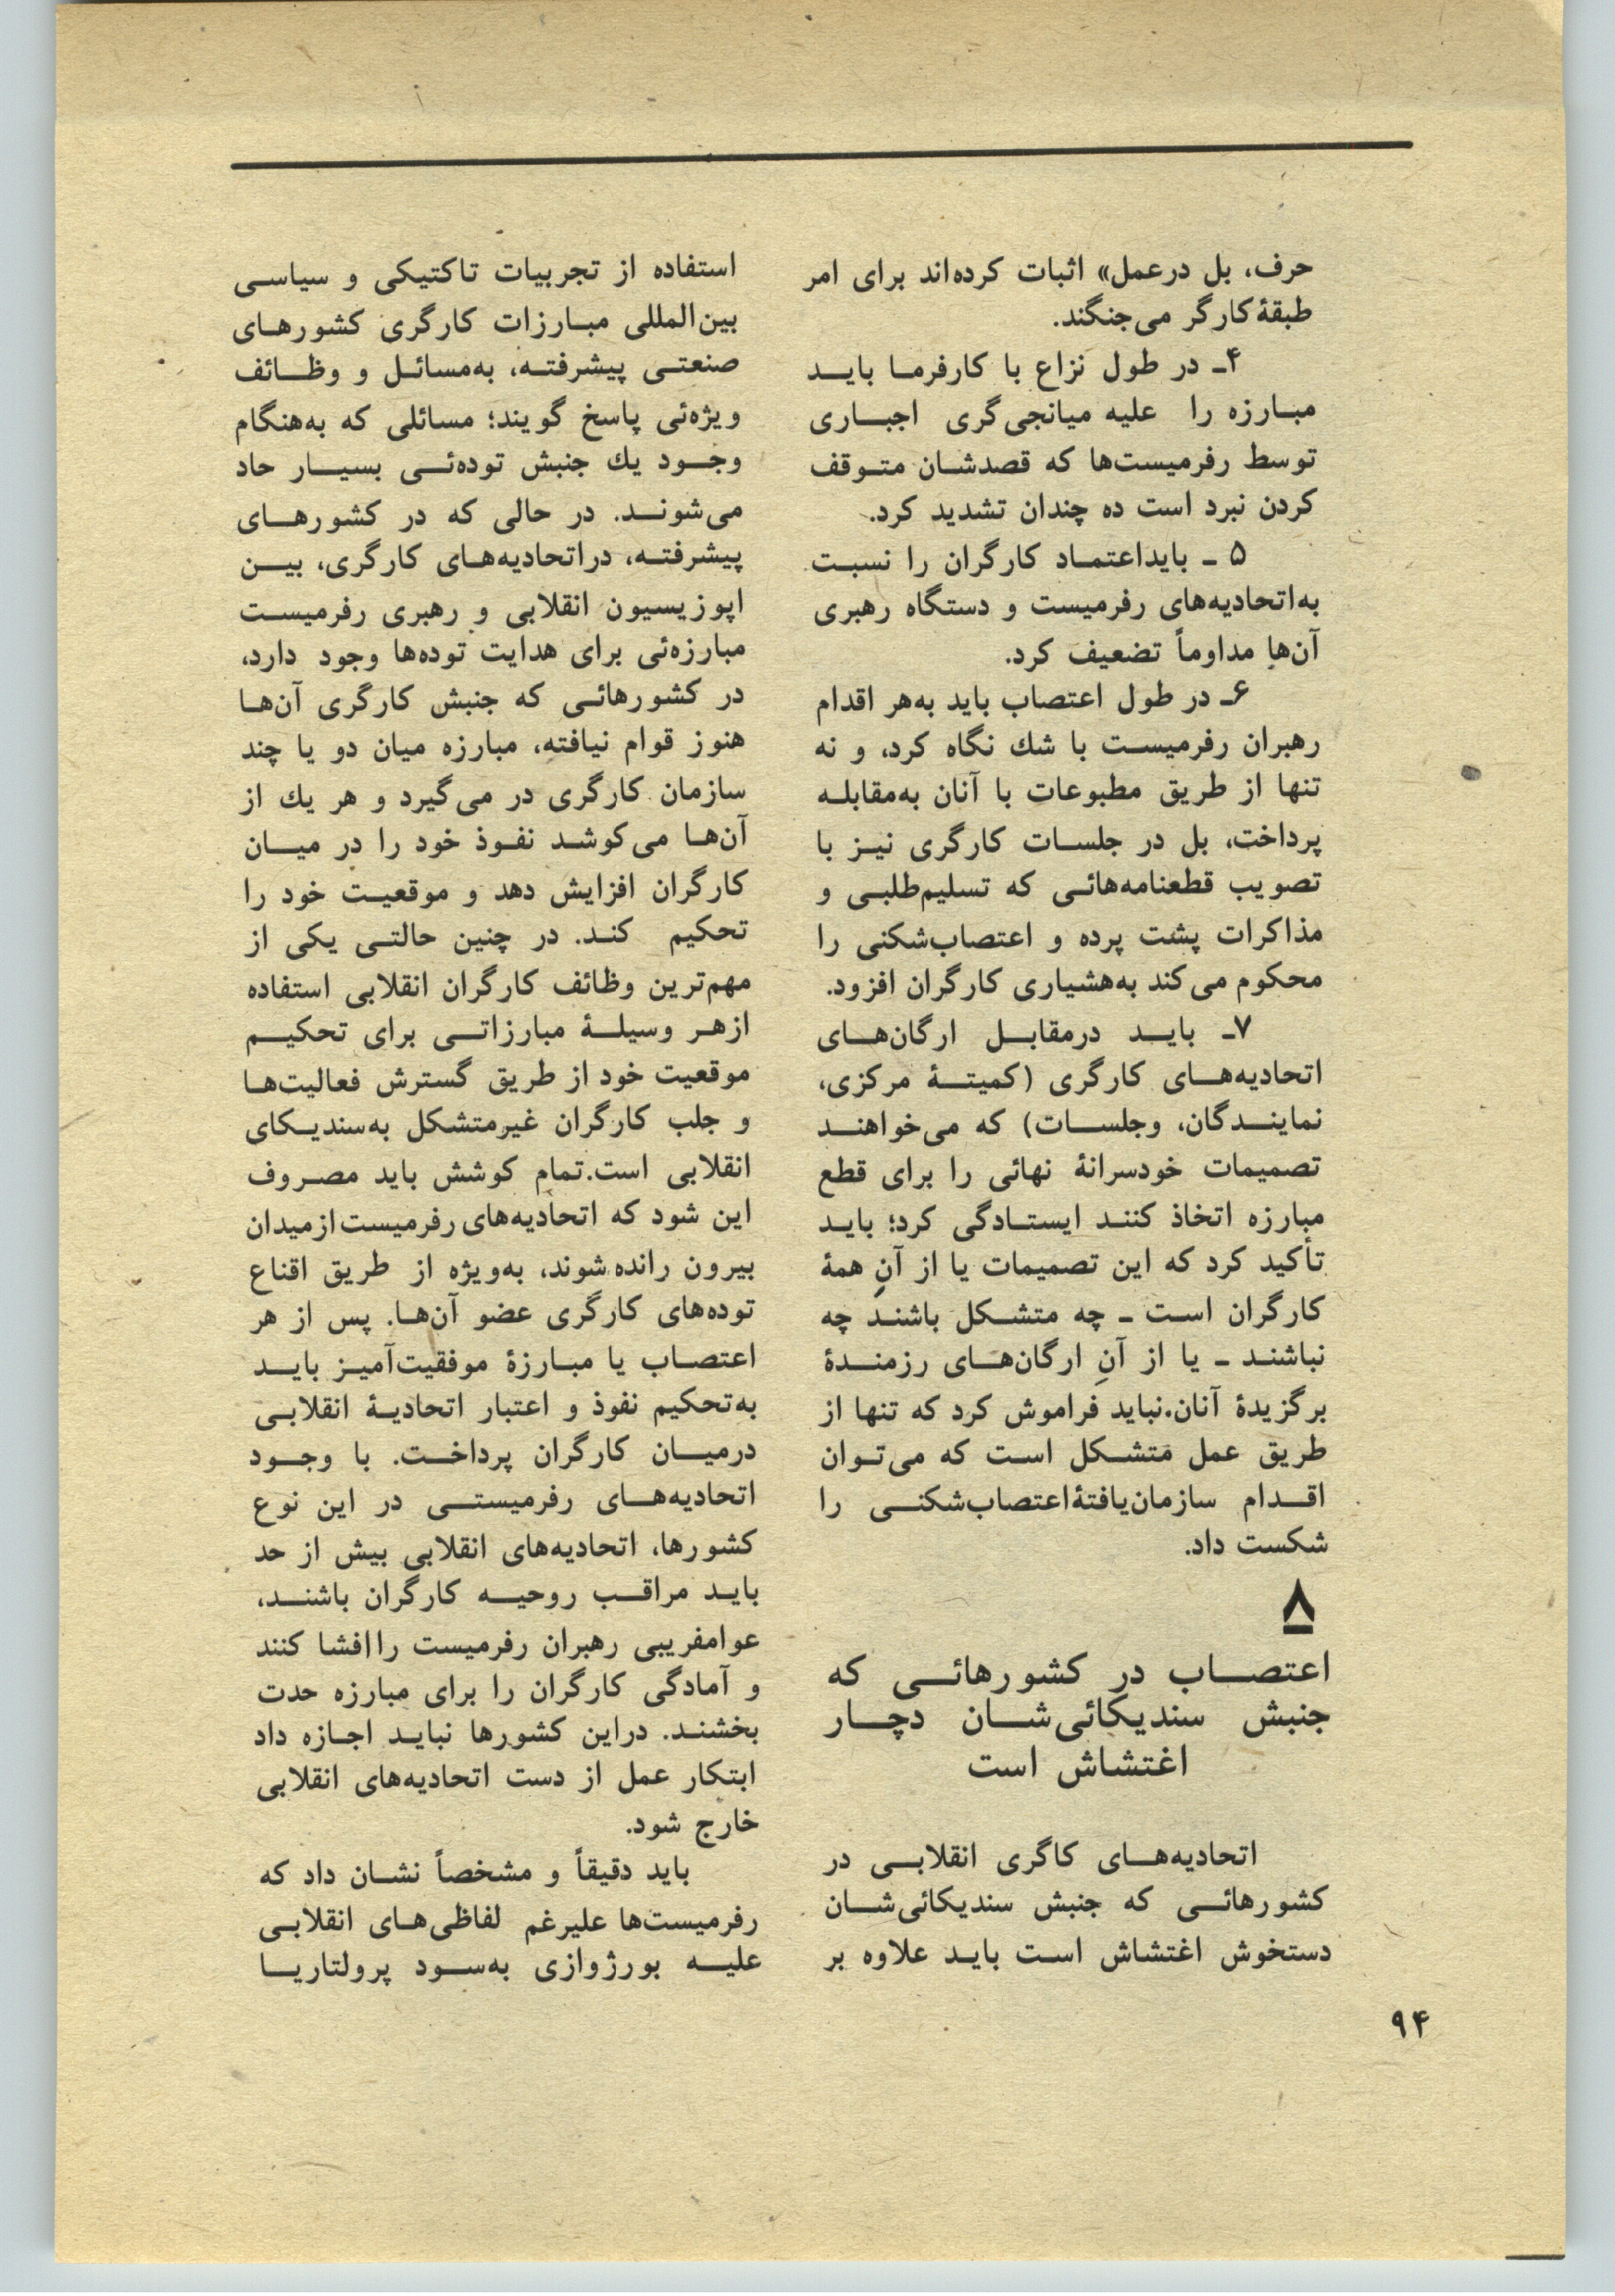 حرف، بل درعمل» اثبات کرده‌اند برای امر
طبقهٔ کارگر می‌جنگند.
۴ـ در طول نزاع با کارفرما باید
مبارزه را علیه میانجی‌گری اجباری
توسط رفرمیست‌ها که قصدشان متوقف
کردن نبرد است ده چندان تشدید کرد.
۵ ـ بایداعتماد کارگران را نسبت
به‌اتحادیه‌های رفرمیست و دستگاه رهبری
آن‌ها مداوماً تضعیف کرد.
۶ـ در طول اعتصاب باید به‌هر اقدام
رهبران رفرمیست با شك نگاه کرد، و نه
تنها از طریق مطبوعات با آنان به‌مقابله
پرداخت، بل در جلسات کارگری نیز با
تصویب قطعنامه‌هائی که تسلیم‌طلبی و
مذاکرات پشت پرده و اعتصاب‌شکنی را
محکوم می‌کند به‌هشیاری کارگران افزود.
۷ـ باید درمقابل ارگان‌های
اتحادیه‌های کارگری (کمیتهٔ مرکزی،
نمایندگان، وجلسات) که می‌خواهند
تصمیمات خودسرانهٔ نهائی را برای قطع
مبارزه اتخاذ کنند ایستادگی کرد؛ باید
تأکید کرد که این تصمیمات یا از آنِ همهٔ
کارگران است ـ چه متشکل باشند چه
نباشند ـ یا از آنِ ارگان‌های رزمندهٔ
برگزیدهٔ آنان.نباید فراموش کرد که تنها از
طریق عمل متشکل است که می‌توان
اقدام سازمان‌یافتهٔ اعتصاب‌شکنی را
شکست داد.
۸
اعتصاب در کشورهائی که
جنبش سندیکائی‌شان دچار
اغتشاش است
اتحادیه‌های کاگری انقلابی در
کشورهائی که جنبش سندیکائی‌شان
دستخوش اغتشاش است باید علاوه بر
استفاده از تجربیات تاکتیکی و سیاسی
بین‌المللی مبارزات کارگری کشورهای
صنعتی پیشرفته، به‌مسائل و وظائف
ویژه‌ئی پاسخ گویند؛ مسائلی که به‌هنگام
وجود یك جنبش توده‌ئی بسیار حاد
می‌شوند. در حالی که در کشورهای
پیشرفته، دراتحادیه‌های کارگری، بین
اپوزیسیون انقلابی و رهبری رفرمیست
مبارزه‌ئی برای هدایت توده‌ها وجود دارد،
در کشورهائی که جنبش کارگری آن‌ها
هنوز قوام نیافته، مبارزه میان دو یا چند
سازمان کارگری در می‌گیرد و هر یك از
آن‌ها می‌کوشد نفوذ خود را در میان
کارگران افزایش دهد و موقعیت خود را
تحکیم کند. در چنین حالتی یکی از
مهم‌ترین وظائف کارگران انقلابی استفاده
ازهر وسیلهٔ مبارزاتی برای تحکیم
موقعیت خود از طریق گسترش فعالیت‌ها
و جلب کارگران غیرمتشکل به‌سندیکای
انقلابی است.تمام کوشش باید مصروف
این شود که اتحادیه‌های رفرمیست ازمیدان
بیرون رانده شوند، به‌ویژه از طریق اقناع
توده‌های کارگری عضو آن‌ها. پس از هر
اعتصاب یا مبارزهٔ موفقیت‌آمیز باید
به‌تحکیم نفوذ و اعتبار اتحادیهٔ انقلابی
درمیان کارگران پرداخت. با وجود
اتحادیه‌های رفرمیستی در این نوع
کشورها، اتحادیه‌های انقلابی بیش از حد
باید مراقب روحیه کارگران باشند،
عوامفریبی رهبران رفرمیست راافشا کنند
و آمادگی کارگران را برای مبارزه حدت
بخشند. دراین کشورها نباید اجازه داد
ابتکار عمل از دست اتحادیه‌های انقلابی
خارج شود.
باید دقیقاً و مشخصاً نشان داد که
رفرمیست‌ها علیرغم لفاظی‌های انقلابی
علیه بورژوازی به‌سود پرولتاریا
۹۴